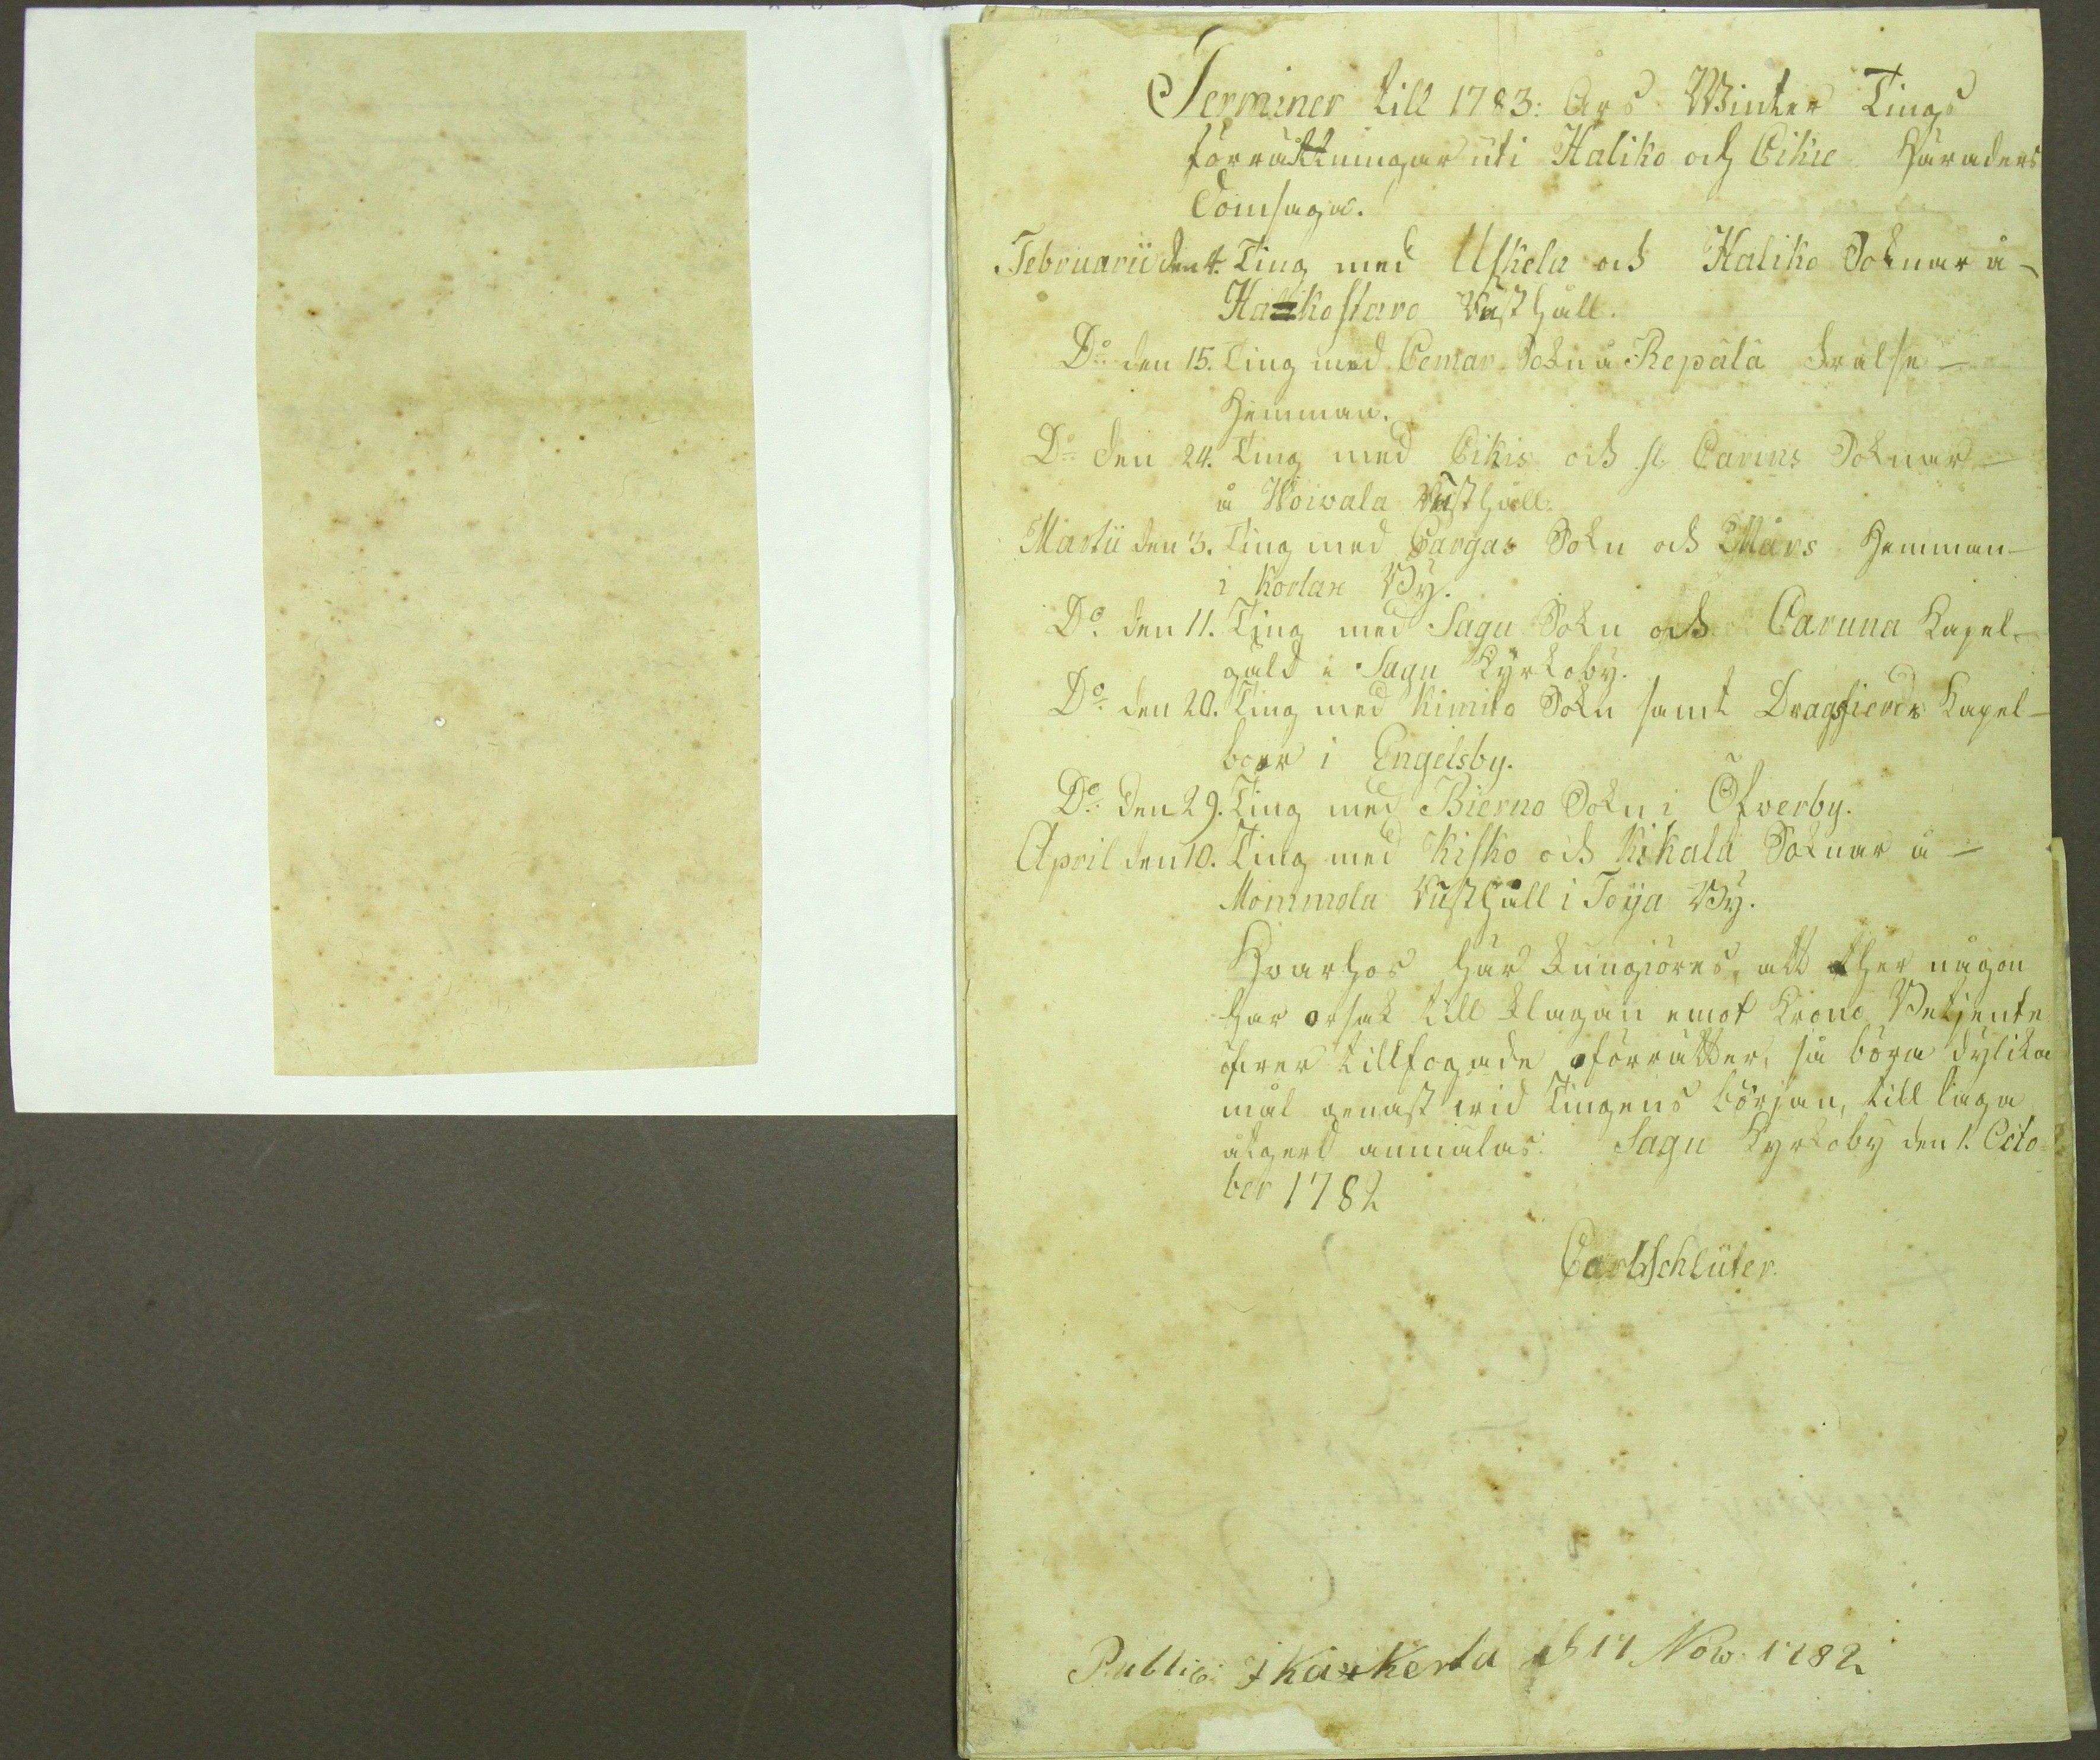 Terminer till 1783: Års Winter Tings
förrättningar uti Haliko och Pikie Häraders
Domsaga.
Februarii den 4. Ting med Uskela och Haliko Soknar å
Haikostaro Rusthåll.
Do den 15. Ting med Pemar Sokn å Repälä Frälse
Hemman.
Do den 24. Ting med Pikis och St. Carins Soknar
å Woivala Rusthåll.
Martii den 3. Ting med Pargas Sokn och Mårs Hemman
i Korlax By.
Do den 11. Ting med Sagu Sokn och Caruna Capel
gäld i Sagu Kyrkoby.
Do den 20. Ting med Kimito Sokn samt Dragsfierds Capel
boer i Engelsby.
Do den 29. Ting med Bierno Sokn i Öfwerby.
April den 10. Ting med Kisko och Kikala Soknar å
Mommola Rusthåll i Toija By.
Hvarhos här kungiöres, att ther någon
har orsak till klagan emot Krono Betjente
öfwer tillfogade oförrätter, så böra dylika
mål genast wid Tingens början, till laga
åtgerd anmälas. Sagu Kyrkoby den 1. Octo-
ber 1782
Carl Schlüter.
Public: i Kaxkerta d 17 Now. 1782